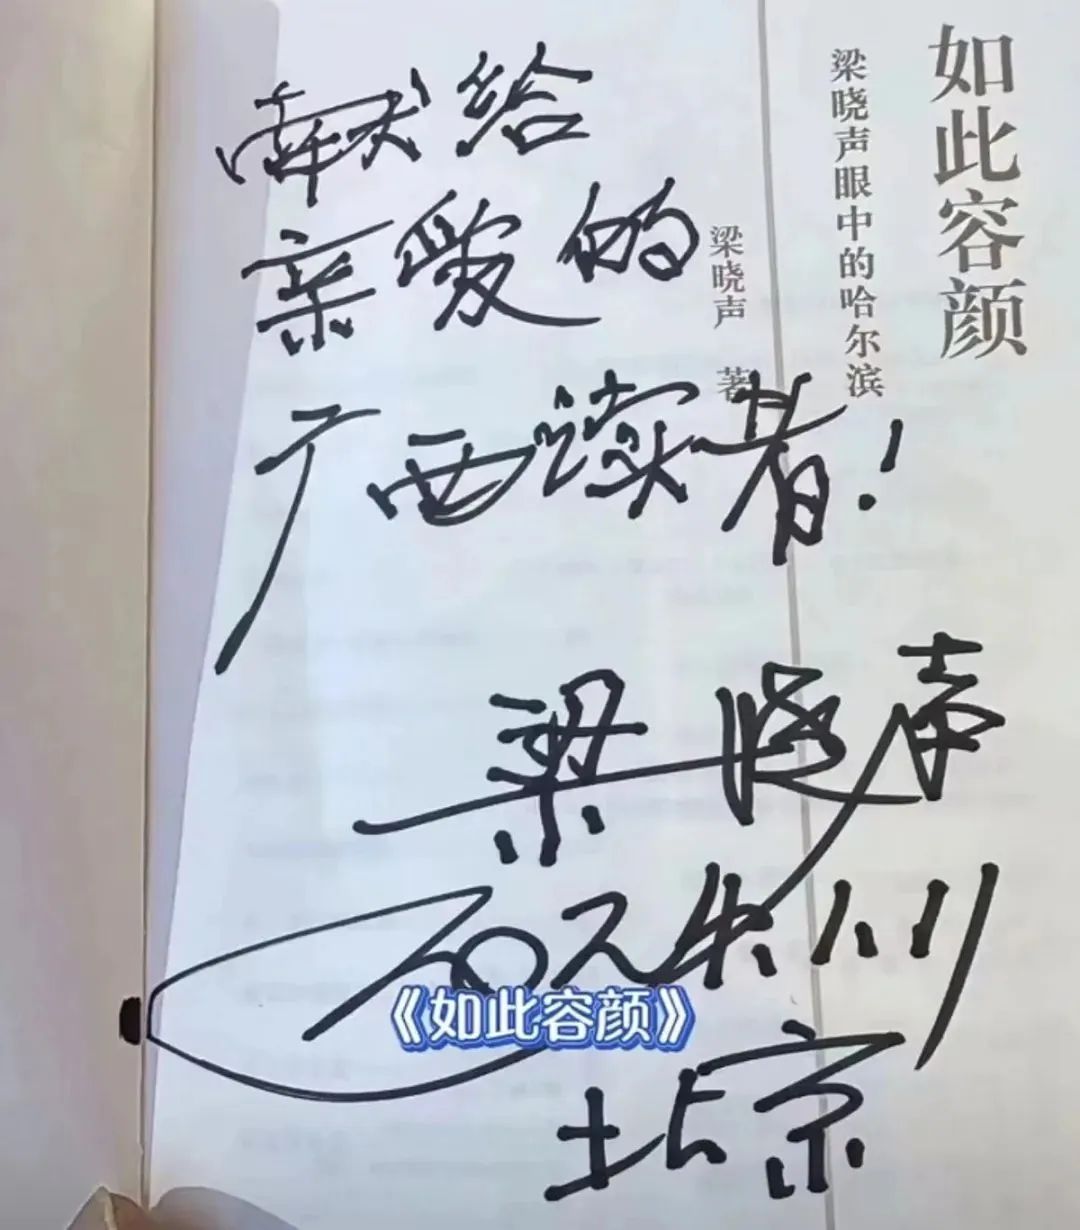 献给
亲爱的
广西读者！
梁晓声
北京
如此容颜
梁晓声眼中的哈尔滨
梁晓声 著
《如此容颜》